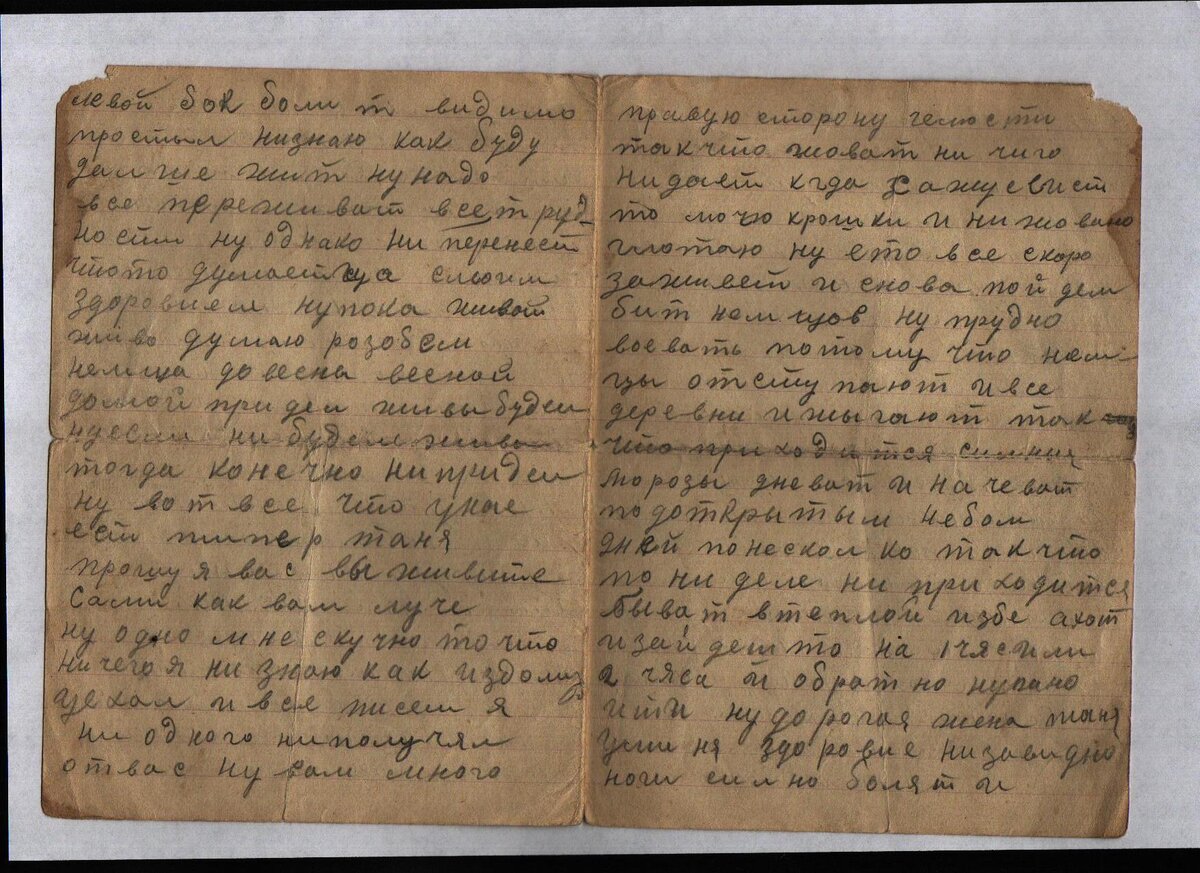 левой бок боли т видимо
простыл низнаю как буду
далше жит ну надо
все переживат все труд
ности ну однако ни перенест
што то думаетца с моим
здоровием ну пока живой
живо думаю розобем
немца до весна весной
домой придем живы будем
ну если ни будем живы
тогда конечно ни придем
ну вот все что у нас
ест типер таня
прошу я вас вы живите
сами как вам луче
ну одно мне скучно то что
ничего я ни знаю как издому
уехал и все писем я
ни одного ни получял
от вас ну сам много
правую сторону челюсти
так что жоват ни чиго
нидает когда
то мочю крошки и ни жовано
глотаю ну ето все скоро
заживет и снова пой дем
бит немцов ну трудно
воевать потому что нем
цы отсту пают и все
деревни ижыгают так
что приходится силныя
морозы дневат и начеват
под открытым небом
дней по нескол ко так что
по ни деле ни приходится
быват в теплой избе а хот
и зай деш то на 1 чяс или
2 чяса и обратно нужно
ити ну дорогая жена таня
уминя здоровие низавидно
ноги силно болят и